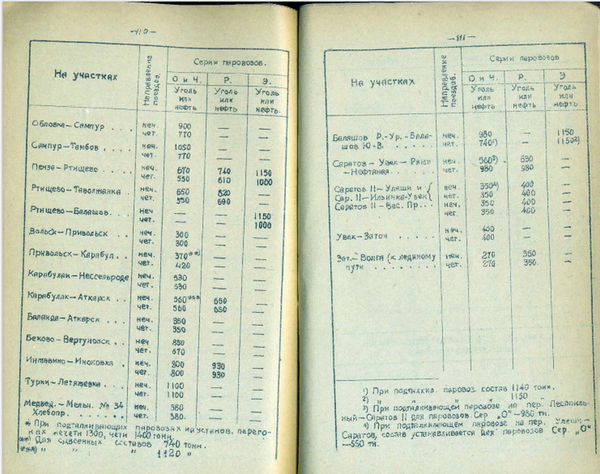 —110—
На участках
Направление поездов.
Серии паровозов.
О и Ч. Р. Э.
Уголь или нефть Уголь или нефть Уголь или нефть.
Обловка—Сампур . . . неч. 900 — —
чет. 770 — —
Сампур—Тамбов . . . неч. 1050 — —
чет. 770 — —
Пенза—Ртищево . . . неч. 670 740 1150
чет. 550 610 1000
Ртищево—Таволжанка неч. 650 820 —
чет. 550 690 —
Ртищево—Балашов. неч. — — 1150
чет. — — 1000
Вольск—Привольск . неч. 300 — —
чет. 300 — —
Привольск—Карабул. . неч. 370**) — —
чет. 420 — —
Карабулак—Нессельроде неч. 530 — —
чет. 530 — —
Карабулак—Аткарск . неч. 560***) 650 —
чет. 560 650 —
Баланда—Аткарск . . неч. 350 — —
чет. 350 — —
Беково—Вертуновск . неч. 850 —
чет. 670 —
Инжавино—Иноковка . неч. 800 930 —
чет. 800 930 —
Турки—Летяжевка . . неч. 1100 — —
чет. 1100 — —
Медвед.—Мельн. № 34 неч. 380 — —
Хлебопр. . . . . чет. 380. — —
*) При подталкивающих паровозах на установ. перего-
нах нечетн 1300, четн 1400 тонн.
**) Для сдвоенных составов 740 тонн.
***) „ „ „ 1120 „
—111—
На участках
Направление поездов.
Серии паровозов
О и Ч. Р. Э
Уголь или нефть. Уголь или нефть Уголь или нефть.
Балашов Р.-Ур.—Бала- неч. 980 — 1150
шов Ю-В. . . . . чет. 740¹) — 1150²)
Саратов—Увек— неч. 560³) 650 —
—Нефтяная . . . чет. 980 980 —
Саратов II—Улеши и неч. 350⁴) 400 —
Сар. II—Ильинка-Увек чет. 350 400 —
Саратов II—Вос. Пр. . . неч. 350 400 —
чет. 350 400 —
Увек—Затон неч. 400 — —
чет. 400 — —
Зат.—Волга (к ледяному неч. 270 350 —
пути . . . . . чет. 270 350. —
¹) При подталкив. паровоз. состав 1140 тонн.
²) „ „ „ 1150 „
³) При подталкивающем паровозе на пер.
ный—Саратов II для паровозов Сер. „О“—980 тн.
⁴) При подталкивающем паровозе на пер. Улеши—
Саратов, состав устанавливается для паровозов Сер. „О“
—550 тн.